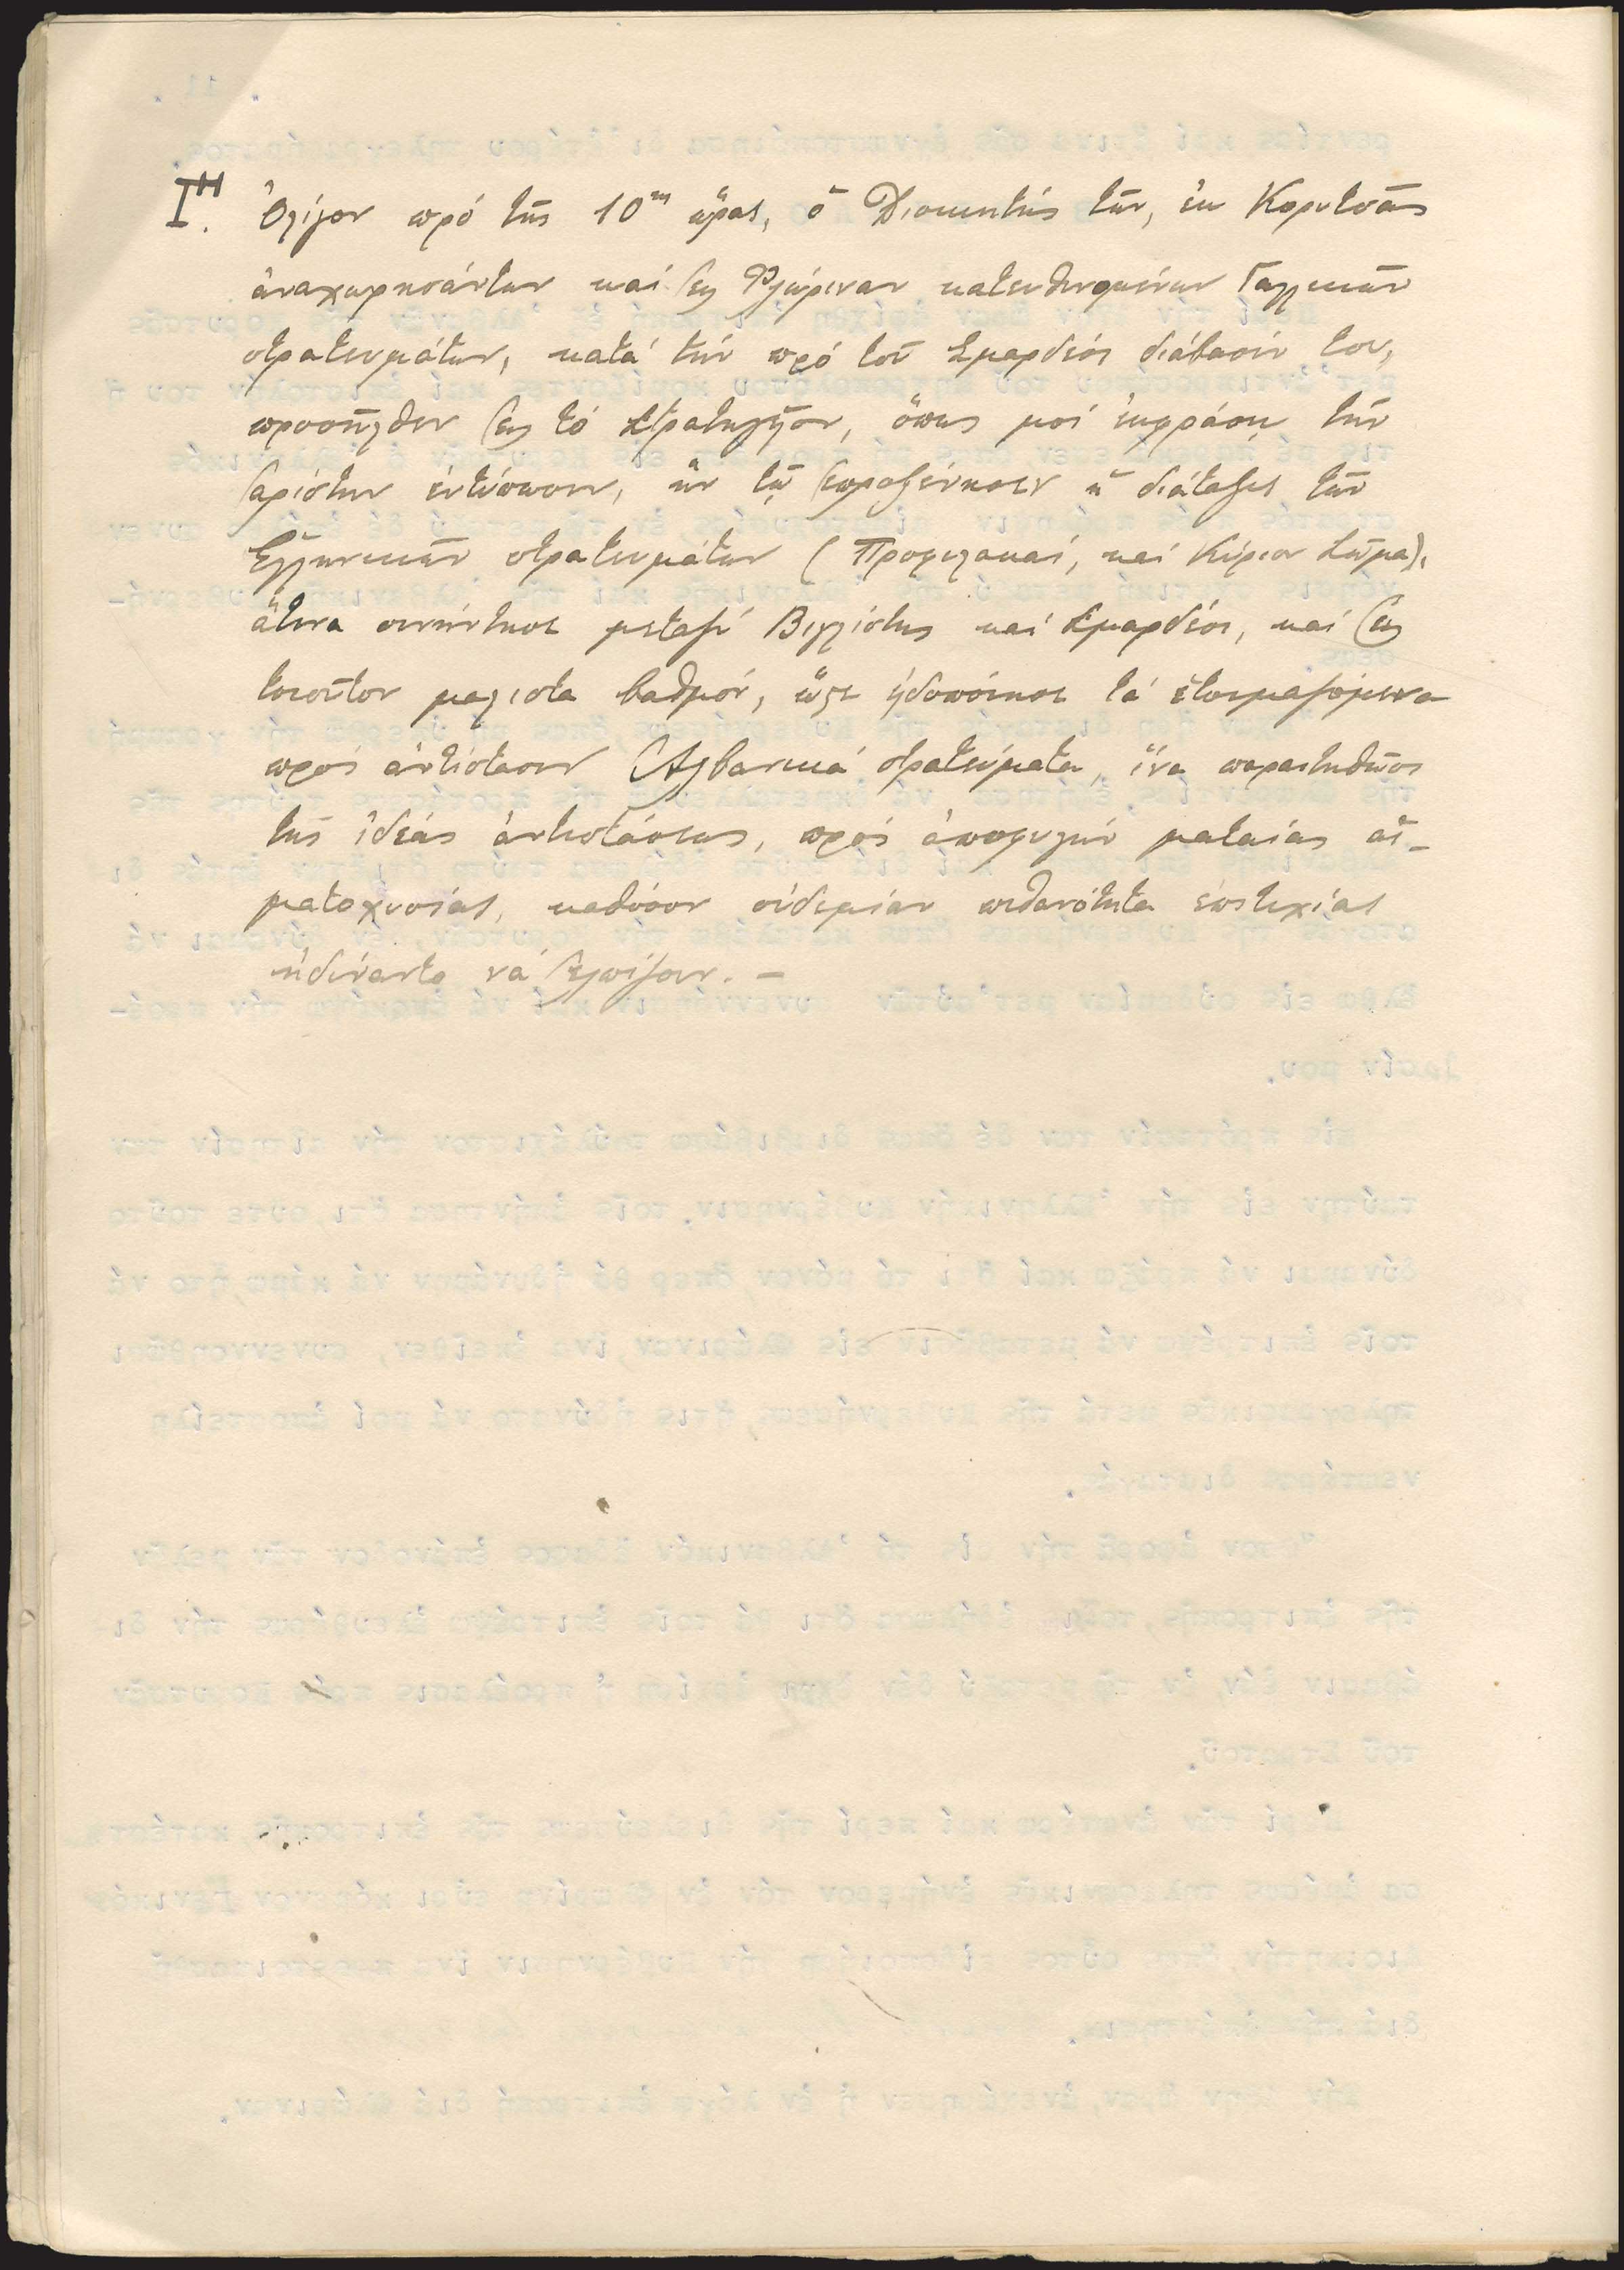 Ιον. Ὀλίγον πρό τῆς 10ης ὥρας, ὁ Διοικητής τῶν, ἐκ Κορυτσᾶς
ἀναχωρησάντων καί εἰς Φλώριναν κατευθυνομένων Γαλλικῶν
στρατευμάτων, κατά τήν πρό τοῦ Σμαρδέσι διάβασίν του,
προσῆλθεν εἰς τό Στρατηγεῖον, ὅπως μοί ἐκφράσῃ τήν
ἀρίστην ἐντύπωσιν, ἥν τῷ ἐπροξένησεν ἡ διάταξις τῶν
Ἑλληνικῶν στρατευμάτων (Προφυλακαί, καί Κύριον Σῶμα),
ἅτινα συνήντησε μεταξύ Βιγλίστης καί Σμαρδέσι, καί εἰς
τοιοῦτον μάλιστα βαθμόν, ὥστε εἰδοποίησε τά ἑτοιμαζόμενα
πρός ἀντίστασιν Ἀλβανικά στρατεύματα, ἵνα παραιτηθῶσι
τῆς ἰδέας ἀντιστάσεως, πρός ἀποφυγήν ματαίας αἱ-
ματοχυσίας, καθόσον οὐδεμίαν πιθανότητα ἐπιτυχίας
ἠδύναντο νά ἐλπίζουν. -